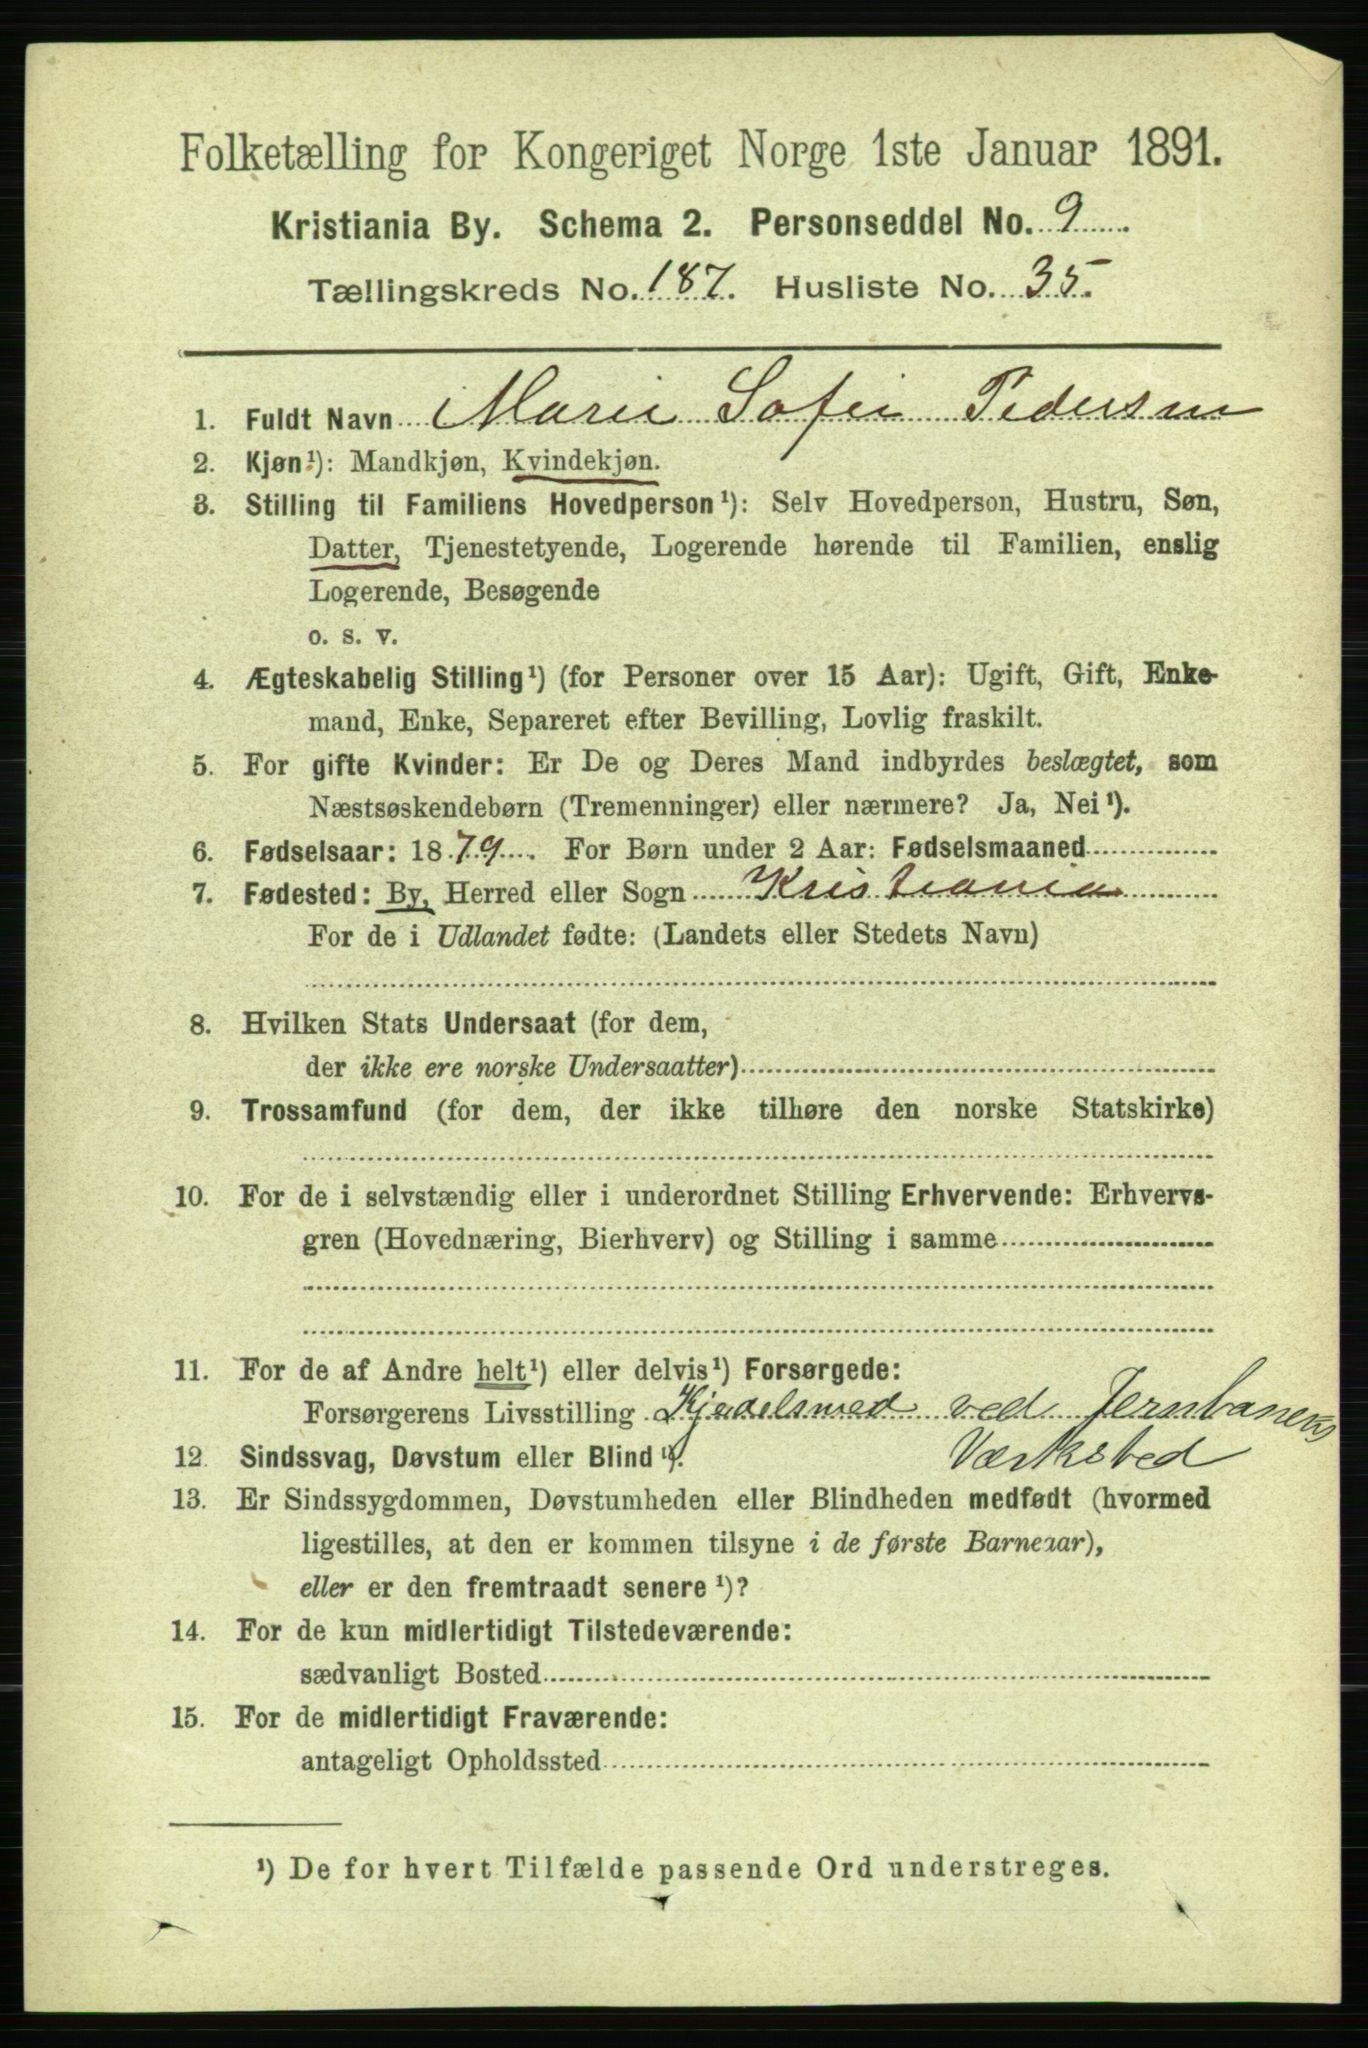 Folketælling for Kongeriget Norge 1ste Januar 1891.
Kristiania By. Schema 2. Personseddel No. 9
Tællingskreds No. 187. Husliste No. 35.
1. Fuldt Navn Marie Sofie Pedersen
2. Kjøn¹): Mandkjøn, Kvindekjøn.
3. Stilling til Familiens Hovedperson¹): Selv Hovedperson, Hustru, Søn,
Datter, Tjenestetyende, Logerende hørende til Familien, enslig
Logerende, Besøgende
o. s. v.
4. Ægteskabelig Stilling¹) (for Personer over 15 Aar): Ugift, Gift, Enke-
mand, Enke, Separeret efter Bevilling, Lovlig fraskilt.
5. For gifte Kvinder: Er De og Deres Mand indbyrdes beslægtet, som
Næstsøskendebørn (Tremenninger) eller nærmere? Ja, Nei¹).
6. Fødselsaar: 1879. For Børn under 2 Aar: Fødselsmaaned
7. Fødested: By, Herred eller Sogn Kristiania
For de i Udlandet fødte: (Landets eller Stedets Navn)
8. Hvilken Stats Undersaat (for dem,
der ikke ere norske Undersaatter)
9. Trossamfund (for dem, der ikke tilhøre den norske Statskirke)
10. For de i selvstændig eller i underordnet Stilling Erhvervende: Erhvervs-
gren (Hovednæring, Bierhverv) og Stilling i samme
11. For de af Andre helt¹) eller delvis¹) Forsørgede:
Forsørgerens Livsstilling Kjedelsmed ved Jernbanens
Værksted
12. Sindssvag, Døvstum eller Blind¹).
13. Er Sindssygdommen, Døvstumheden eller Blindheden medfødt (hvormed
ligestilles, at den er kommen tilsyne i de første Barneaar),
eller er den fremtraadt senere¹)?
14. For de kun midlertidigt Tilstedeværende:
sædvanligt Bosted
15. For de midlertidigt Fraværende:
antageligt Opholdssted
¹) De for hvert Tilfælde passende Ord understreges.